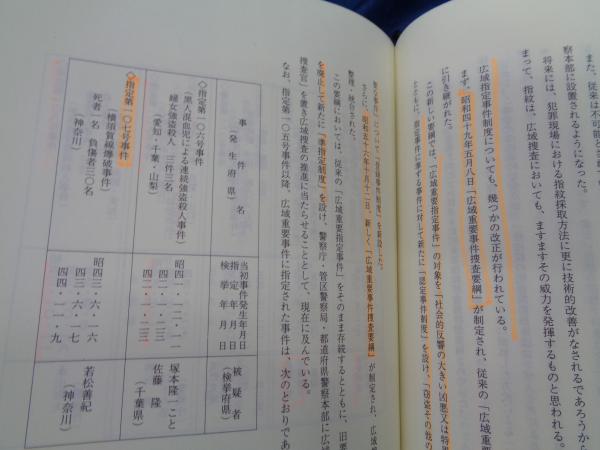 また、従来は不可能とさ
察本部に設置されるようになった。
将来には、犯罪現場における指紋採取方法に更に技術的改善がなされるであろうから
まって、指紋は、広域捜査においても、ますますその威力を発揮するものと思われる。
広域指定事件制度についても、幾つかの改正が行われている。
まず、昭和四十九年五月八日「広域重要事件捜査要綱」が制定され、従来の「広域重要
に引き継がれた。
この新しい要綱では、「広域重要指定事件」の対象を「社会的反響の大きい凶悪又は特異
るとともに、指定事件に準ずる事件に対して新たに「認定事件制度」を設け、「窃盗その他の
事件」について「登録事件制度」を新設した。
さらに、昭和五十六年十月十二日、新しく「広域重要事件捜査要綱」が制定され、広域
整理・統合された。
この要綱においては、従来の「広域重要指定事件」をそのまま存続するとともに、旧要
を廃止して新たに「準指定制度」を設け、警察庁・管区警察局・都道府県警察本部に広域
捜査官」を置き広域捜査の推進に当たらせることとして、現在に及んでいる。
なお、指定第一〇五号事件以降、広域重要事件に指定された事件は、次のとおりであ
事件名
(発生府県)
当初事件発生年月日
指定年月日
検挙年月日
被疑者
(検挙府県)
◇指定第一〇六号事件
(黒人混血児による連続強盗殺人事件)
婦女強盗殺人 三件三名
(愛知・千葉・山梨)
昭四一・一二・一一
四二・一・二一
四二・一・二三
塚本隆一こと
佐藤隆
(千葉県)
◇指定第一〇七号事件
(横須賀線爆破事件)
死者一名 負傷者三〇名
(神奈川)
昭四三・六・一六
四三・六・一七
四四・一一・九
若松善紀
(神奈川)